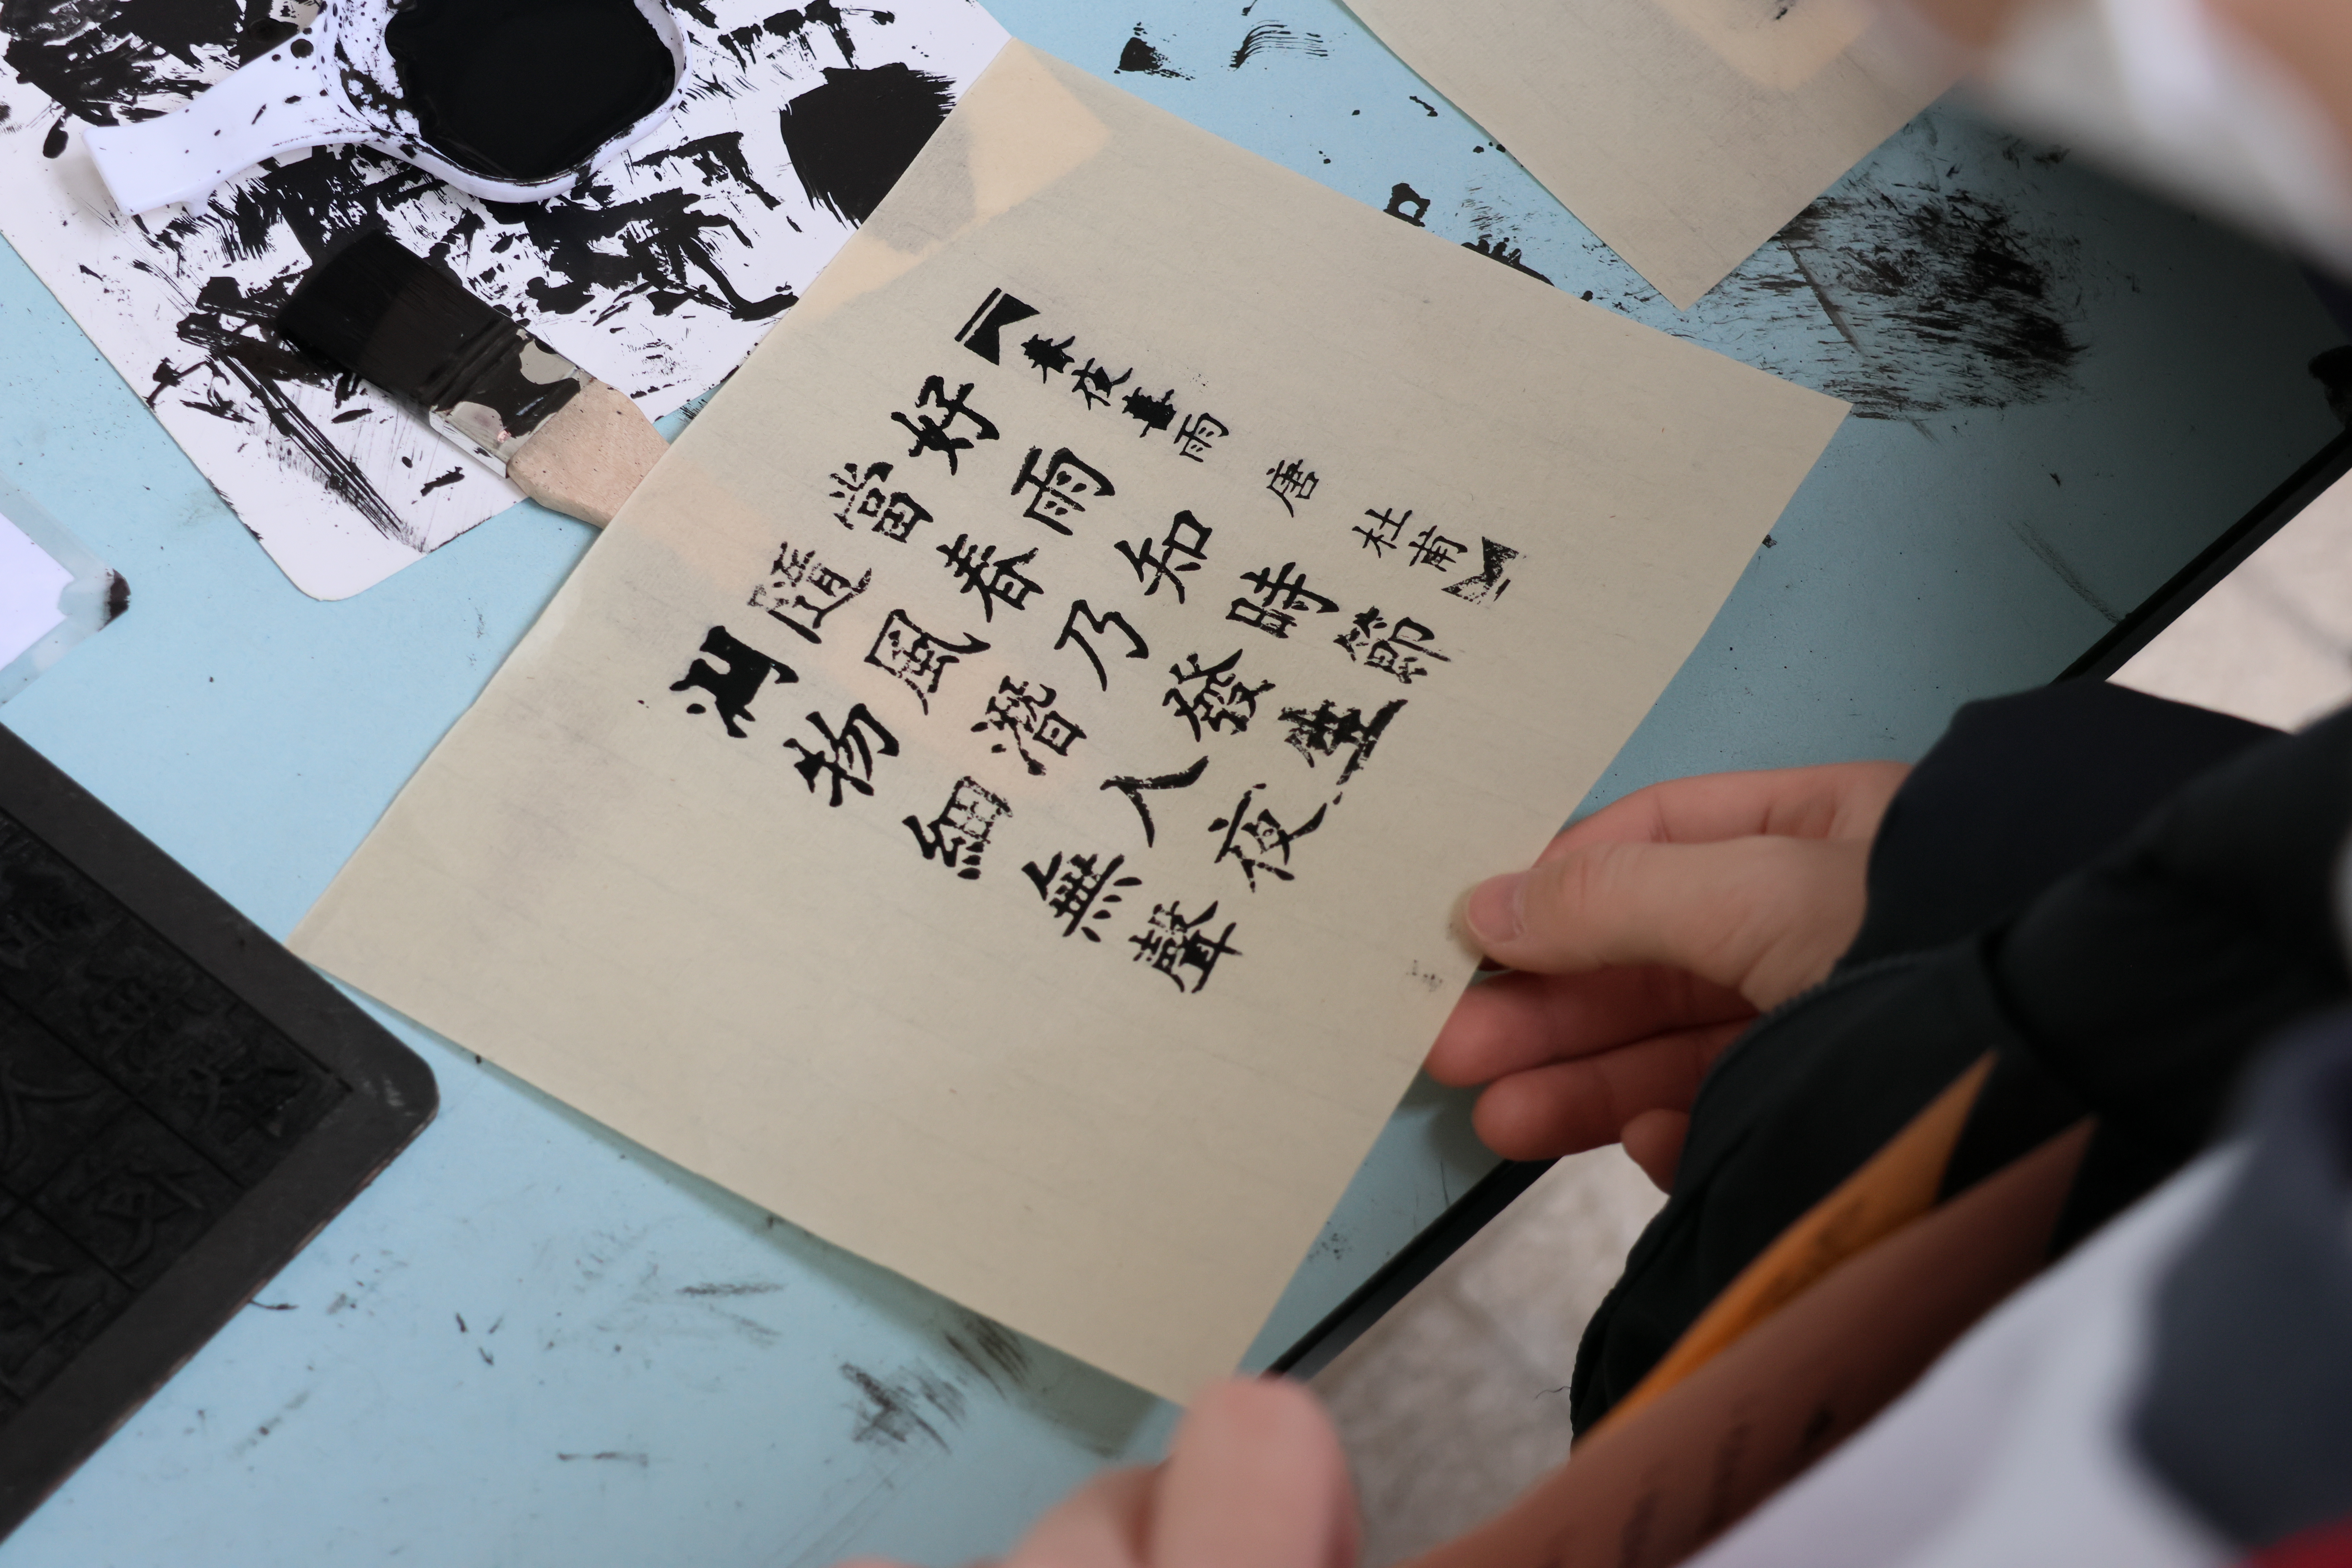 春夜喜雨 唐 杜甫
好雨知時節
當春乃發生
隨風潛入夜
潤物細無聲